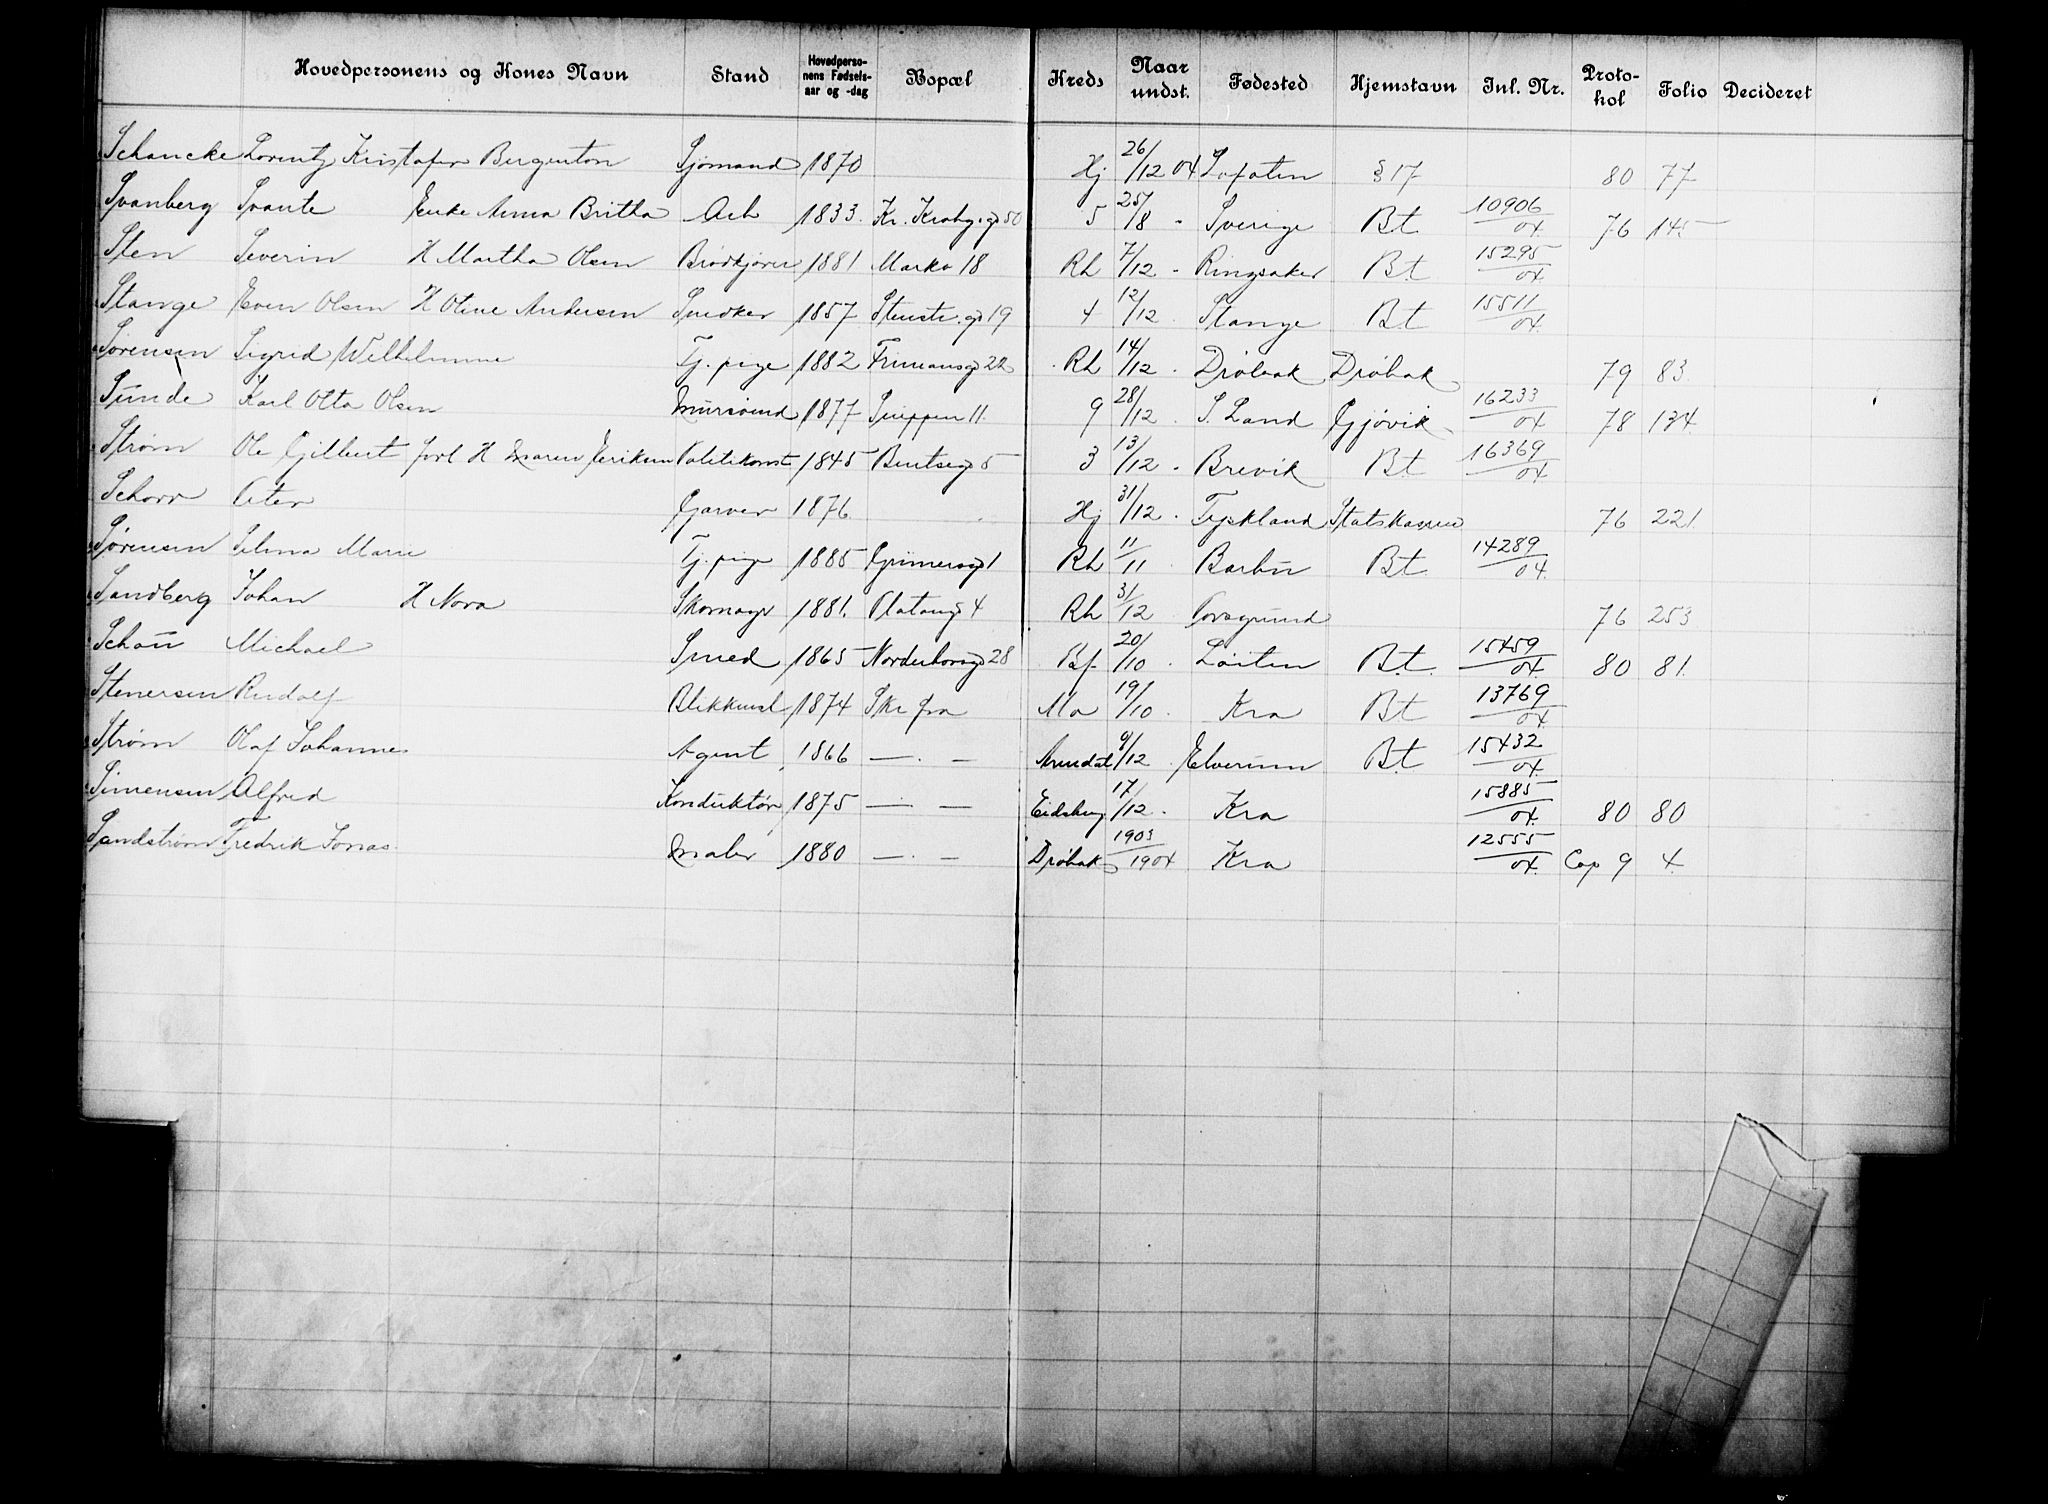 Hovedpersonens og Kones Navn Stand Hovedperso-nens Fødsels-aar og -dag Bopæl Kreds Naar undst. Fødested Hjemstavn Inl. Nr. Proto-kol Folio Decideret
Schancke Lorentz Kristofer Bergenton Sjømand 1870 Hj 26/12 04 Lofoten § 17 80 77
Svanberg Svante Enke Anna Britha Arb 1833. Kr. Krohgsgd 50 5 25/8 - Sverige Bt 10906/04. 76 145
Sten Severin H Martha Olsen Brødkjører 1881 Markv 18 Rh 7/12 - Ringsaker Bt 15295/04.
Stange Even Olsen H Oline Andersen Snedker 1857 Stenstr. gd 19 4 12/12 . Stange Bt 15511/04.
Sørensen Sigrid Wilhelmine Tj. pige 1882 Frimansgd 22 Rh 14/12 . Drøbak Drøbak 79 83.
Sunde Karl Otto Olsen Mursvend 1877 11. 9 28/12 . S. Land Gjøvik 16233/04 78 134
Strøm Ole Gilbert forl H Maren Eriksen Politikonst 1845 Bentsegd 5 3 13/12 . Brevik Bt 16369/04
Schorr Garver 1876. Hj 31/12 . Tyskland Statskassen 76 221.
Sørensen Selma Marie Tj. pige 1885 Grünersgd 1 Rh 11/11 Barbu Bt 14289/04.
Sandberg Johan H Nora Skomager 1881. Platousgd 4 Rh 31/12 Porsgrund 76 253
Schau Michael Smed 1865 Norderhovsgd 28 Bf. 20/10 . Løiten Bt. 15459/04. 80 81.
Stenersen Rudolf Blikkensl 1874 Ske fra Ma 19/10 . Kra Bt 13769/04.
Strøm Olaf Johannes Agent 1866 — . — Arendal 9/12 . Elverum Bt 15432/04.
Simensen Alfred Konduktør 1875 — . — Eidsberg 17/12 . Kra 15885/04. 80 80
Sandstrøm Fredrik Jonas Maler 1880 — . — Drøbak 1903/1904 Kra 12555/04. Cap 9 4.